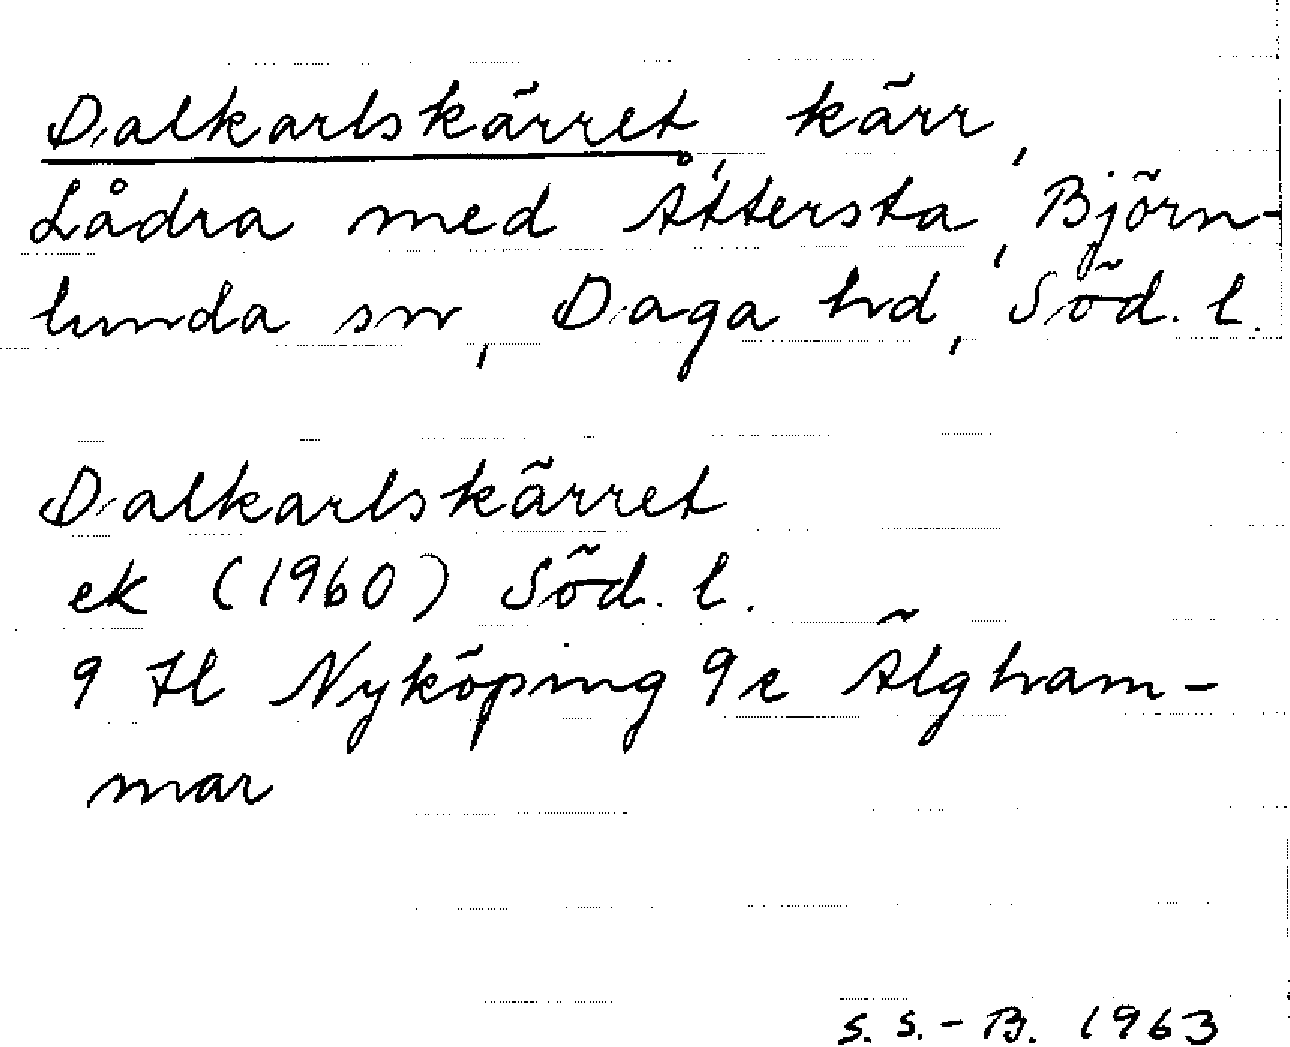 Dalkarlskärret, kärr,
Lådra med Åttersta, Björn-
lunda sn, Daga hd, Söd. l.
Dalkarlskärret
ek (1960) Söd. l.
9 H Nyköping 9 c Älgham-
mar
S. S.-B. 1963